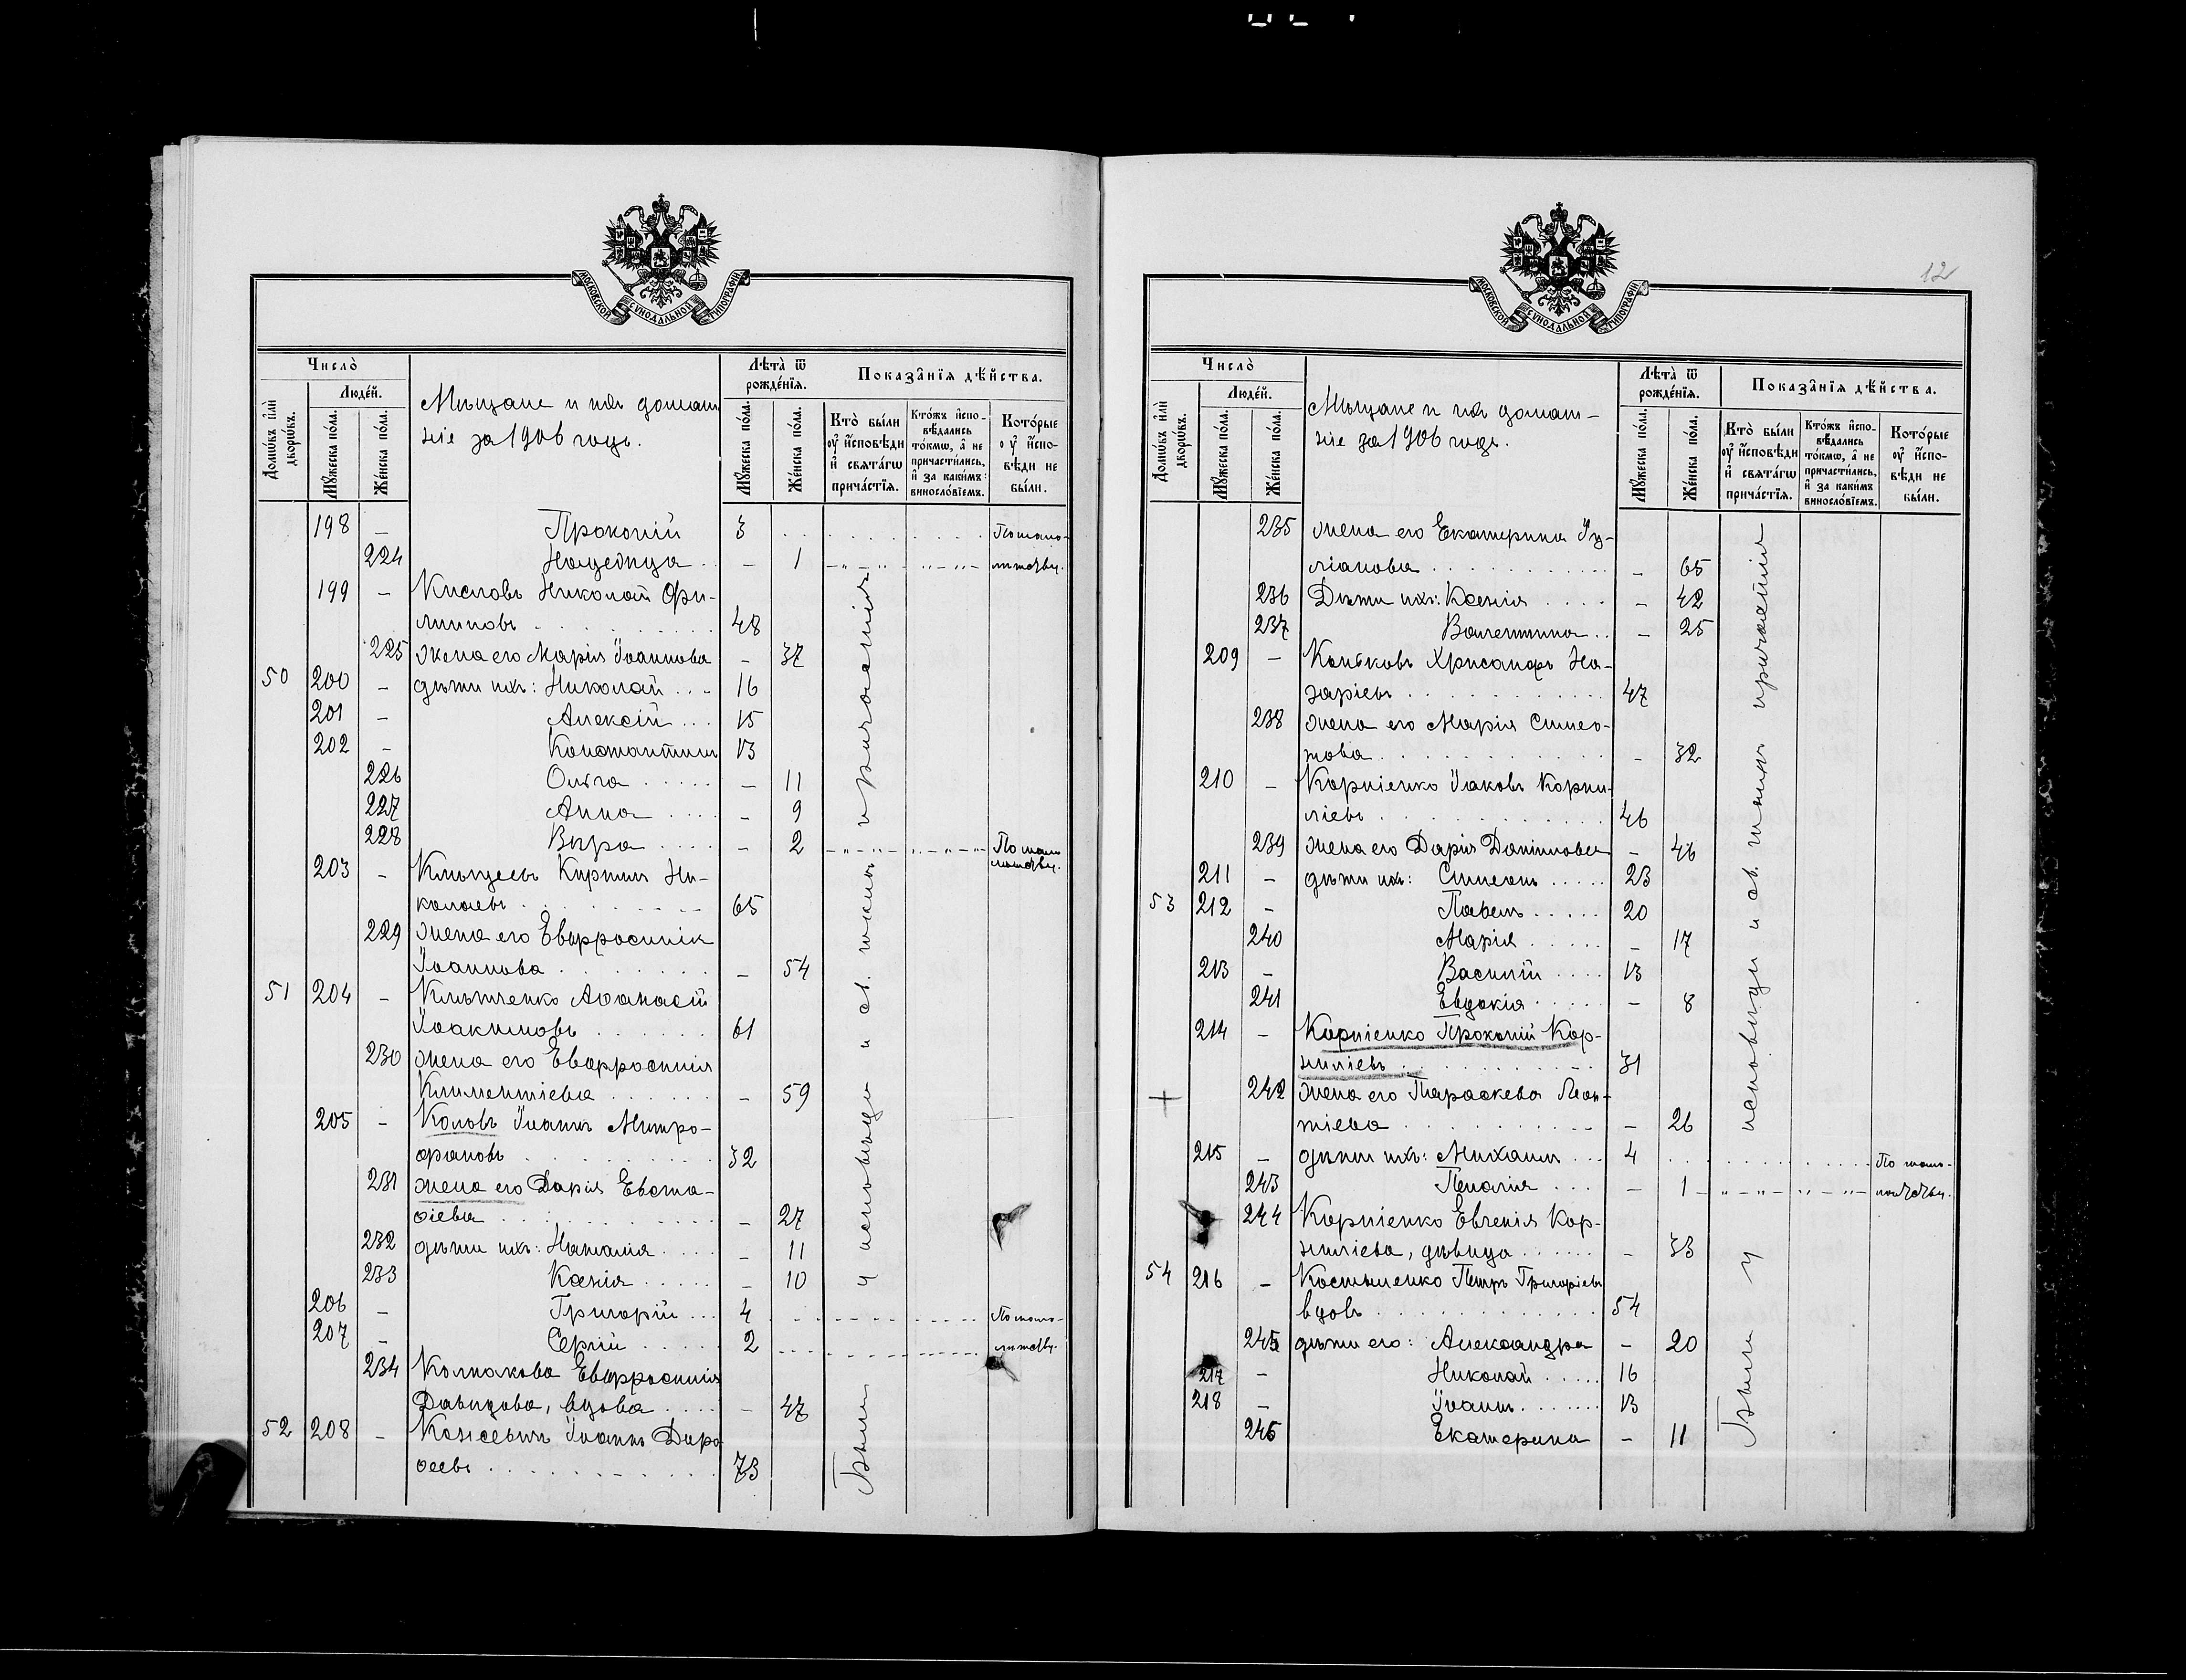 МОСКОВСКОЙ СѴНОДАЛЬНОЙ ТИПОГРАФІИ
Число̀
Домѡ́въ и҆лѝ дворѡ́въ.
Люде́й.
Мꙋ́жеска по́ла.
Же́нска по́ла.
Мѣщане и ихъ домаш
ніе за 1906 годъ.
Лѣ́та ѿ рожде́нїѧ.
Мꙋ́жеска по́ла.
Же́нска по́ла.
Показа̑нїѧ дѣ́йства.
Кто̀ бы́ли оу҆ и҆́сповѣди и҆ свѧта́гѡ прича́стїѧ.
Кто́жъ и҆спо-вѣ́дались то́кмѡ, а҆ не причасти́лись, и҆ за каки́мъ виносло́вїемъ.
Кото́рые оу҆ и҆́спо-вѣди не бы́ли.
198 – Прокопій 3 . . . . . . . По мало-
224 Надежда – 1 –„–„– лѣтству.
199 – Кисловъ Николай Фи-
липповъ 48
225 Жена его Марія Іоаннова – 37
50 200 – дѣти ихъ: Николай 16
201 – Алексій 15
202 – Константинъ 13
226 Ольга – 11
227 Анна – 9
228 Вѣра – 2 –„–„– По мало
лѣтству.
203 – Кирилл Ни-
колаевъ 65
229 жена его Евфросинія
Іоаннова – 54
51 204 – Аѳанасій
Іоакимовъ 61
230 жена его Евфросинія
Климентіева – 59
205 – Коловъ Іоаннъ Митро-
фановъ 32
231 жена его Дарія Евста-
ѳіева – 27
232 дѣти ихъ: Наталія – 11
233 Ксенія – 10
206 – Григорій 4 По мало-
207 – Сергій 2 лѣтству.
234 Колпакова Евфросинія
Давидова, вдова – 47
52 208 – Іоаннъ Доро
ѳеевъ 73
Были у исповѣди и св. тайнъ причастія
12
МОСКОВСКОЙ СѴНОДАЛЬНОЙ ТИПОГРАФІИ
Число̀
Домѡ́въ и҆лѝ дворѡ́въ.
Люде́й.
Мꙋ́жеска по́ла.
Же́нска по́ла.
Мѣщане и ихъ домаш-
ніе за 1906 годъ.
Лѣ́та ѿ рожде́нїѧ.
Мꙋ́жеска по́ла.
Же́нска по́ла.
Показа̑нїѧ дѣ́йства.
Кто̀ бы́ли оу҆ и҆́сповѣди и҆ свѧта́гѡ прича́стїѧ.
Кто́жъ и҆спо-вѣ́дались то́кмѡ, а҆ не причасти́лись, и҆ за каки́мъ виносло́вїемъ.
Кото́рые оу҆ и҆́спо-вѣди не бы́ли.
235 жена его Екатерина Іу-
ліанова – 65
236 Дѣти ихъ: Ксенія – 42
237 Валентина – 25
209 – Коньковъ Хрисанфъ На-
заріевъ 47
238 жена его Марія Симео-
нова – 32
210 – Корніенко Іаковъ Корни-
ліевъ 46
239 жена его Дарія Даніилова – 46
211 – дѣти ихъ: Симеонъ 23
53 212 – Павелъ 20
240 Марія – 17
213 – Василій 13
241 Евдокія – 8
214 – Корніенко Прокопій Кор-
ниліевъ 31
+ 242 жена его Параскева Леон-
тіева – 26
215 – дѣти ихъ: Михаилъ 4 . . . . . . . По мало-
243 Пелагія – 1 –„–„– лѣтству.
244 Корніенко Евгенія Кор-
ниліева, дѣвица – 33
54 216 – Костыленко Петръ Григоріевъ
вдовъ 54
245 дѣти его: Александра – 20
217 – Николай 16
218 – Іоаннъ 13
246 Екатерина – 11
Были у исповѣди и св. тайнъ причастія